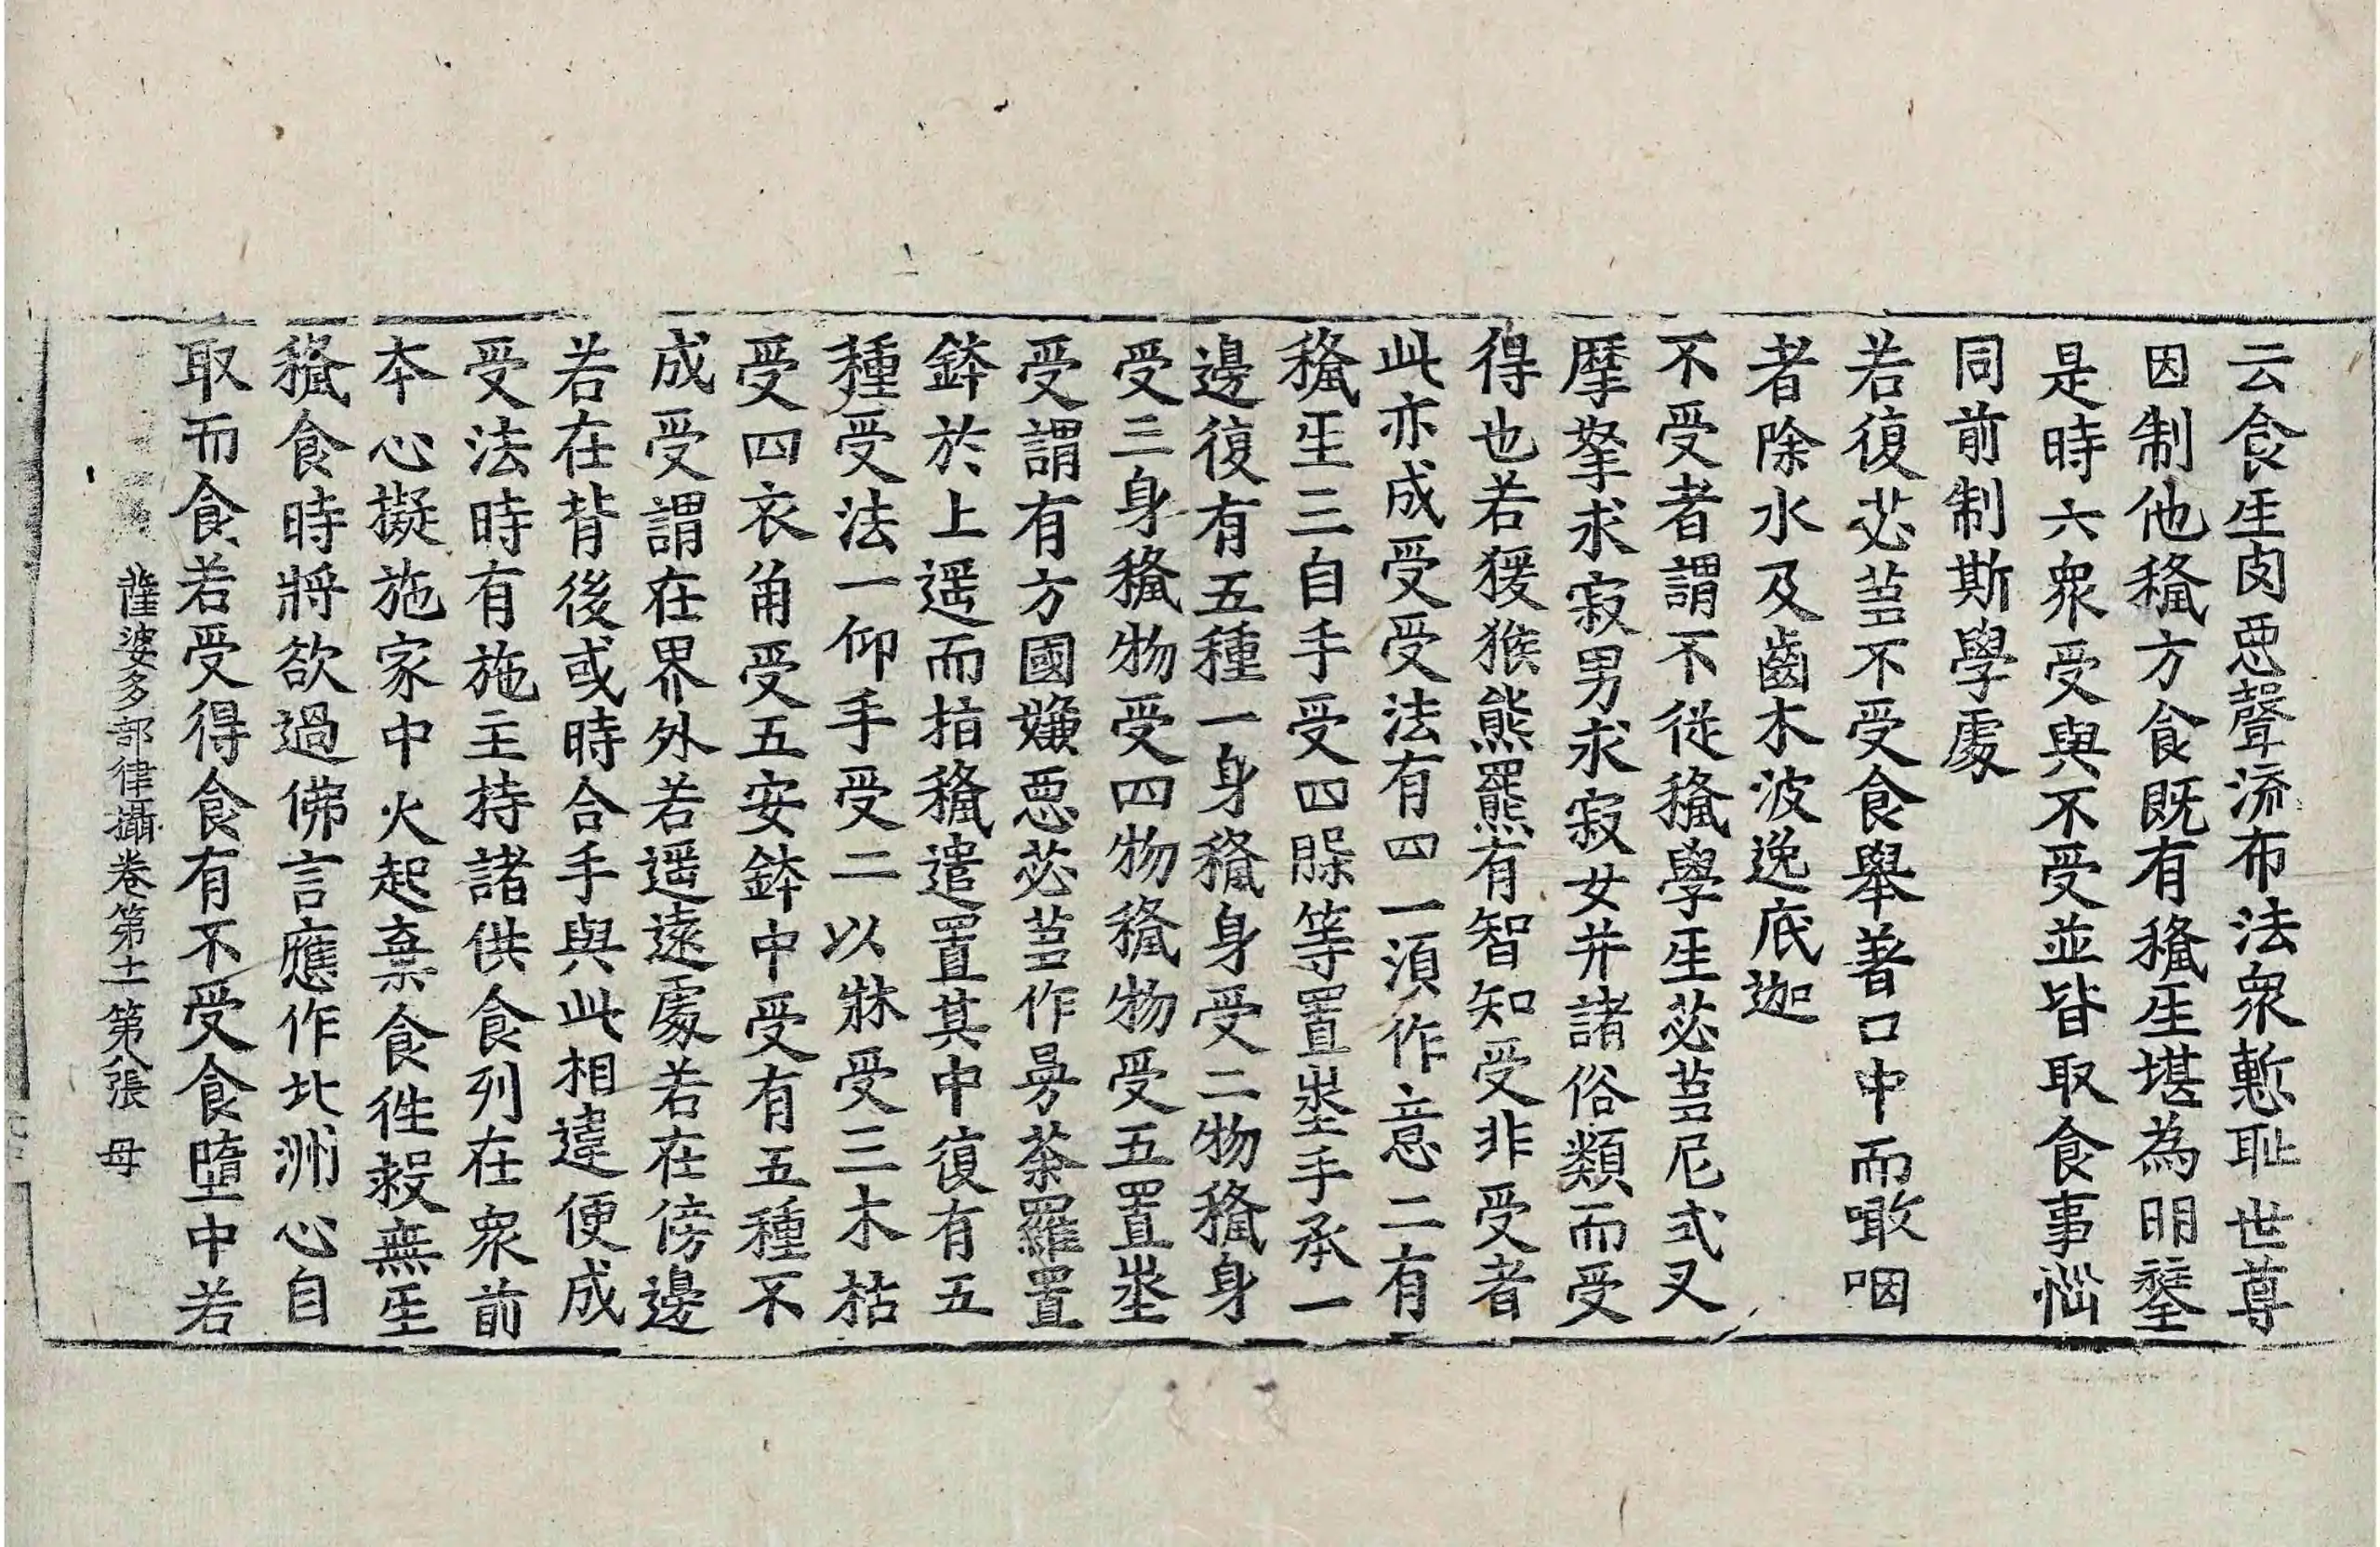 云食𤯔肉𢙣聲流布法衆慙耻世尊
因制他𥠢方食既有𥠢𤯔堪為明𨭻
是時六衆受與不受並皆取食事惱
同前制斯學處
若復苾芻不受食舉著口中而噉咽
者除水及齒木波逸底迦
不受者謂不從𥠢學𤯔苾芻尼式叉
摩拏求寂男求寂女并諸俗類而受
得也若猨猴熊羆有智知受非受者
此亦成受受法有四一湏作意二有
𥠢𤯔三自手受四躶等置埊手承一
邊復有五種一身𥠢身受二物𥠢身
受三身𥠢物受四物𥠢物受五置埊
受謂有方國嫌𢙣苾芻作曼荼羅置
鉢於上遥而指𥠢遣置其中復有五
種受法一仰手受二以牀受三木枯
受四衣角受五安鉢中受有五種不
成受謂在界外若遥遠處若在傍邊
若在背後或時合手與此相違便成
受法時有施主持諸供食列在衆前
本心擬施家中火起棄食徃救無𤯔
𥠢食時將欲過佛言應作北洲心自
取而食若受得食有不受食墮中若
薩婆多部律攝卷第十一第八張 母